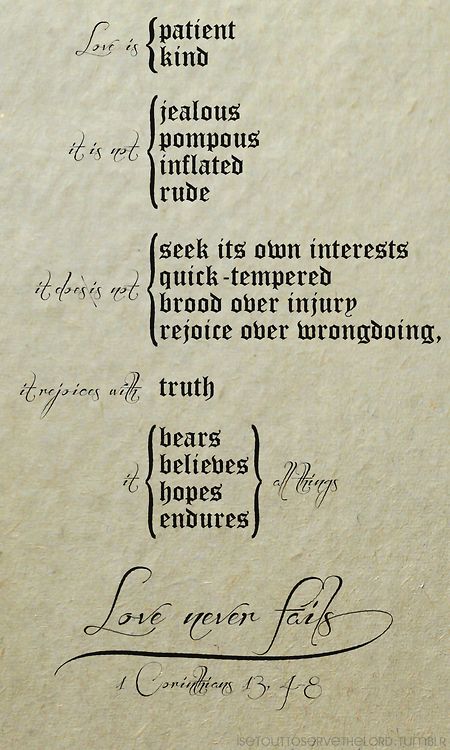 Love is
patient
kind
it is not
jealous
pompous
inflated
rude
it does is not
seek its own interests
quick-tempered
brood over injury
rejoice over wrongdoing,
it rejoices with truth
it
bears
believes
hopes
endures
all things
Love never fails
1 Corinthians 13, 4-8
ISETOUTTOSERVETHELORD.TUMBLR